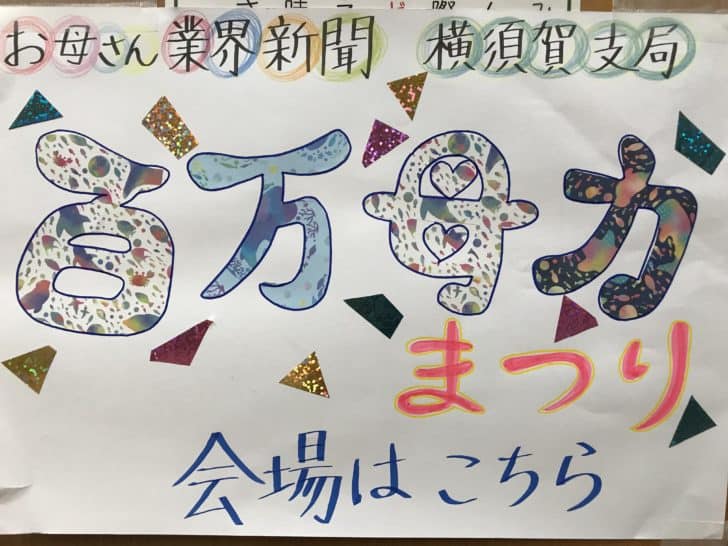 お母さん業界新聞 横須賀支局
百万母力
まつり
会場はこちら